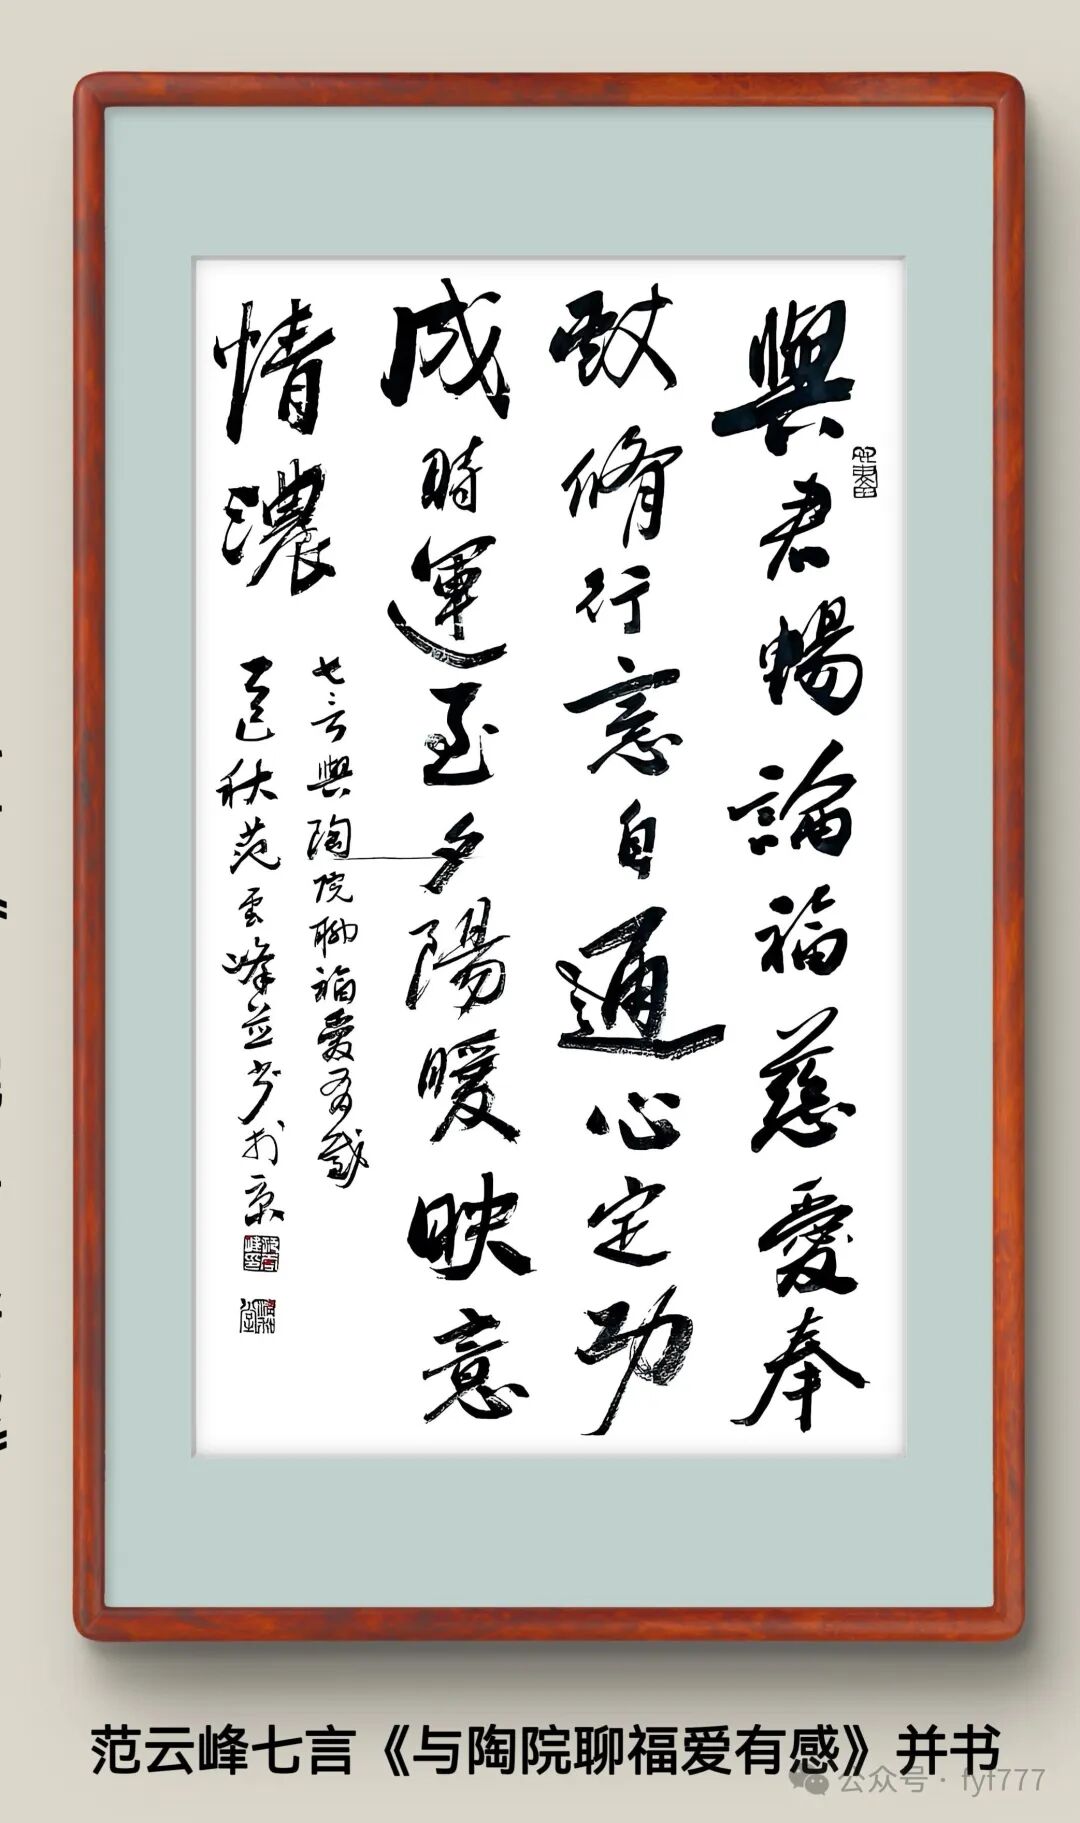 與君暢論福慈愛奉
獻脩行意自通心定功
成時運至夕陽暖映意
情濃
七言與陶院聊福愛有感
乙巳秋范雲峰並书於京
范云峰七言《与陶院聊福爱有感》并书
公众号·fyf777